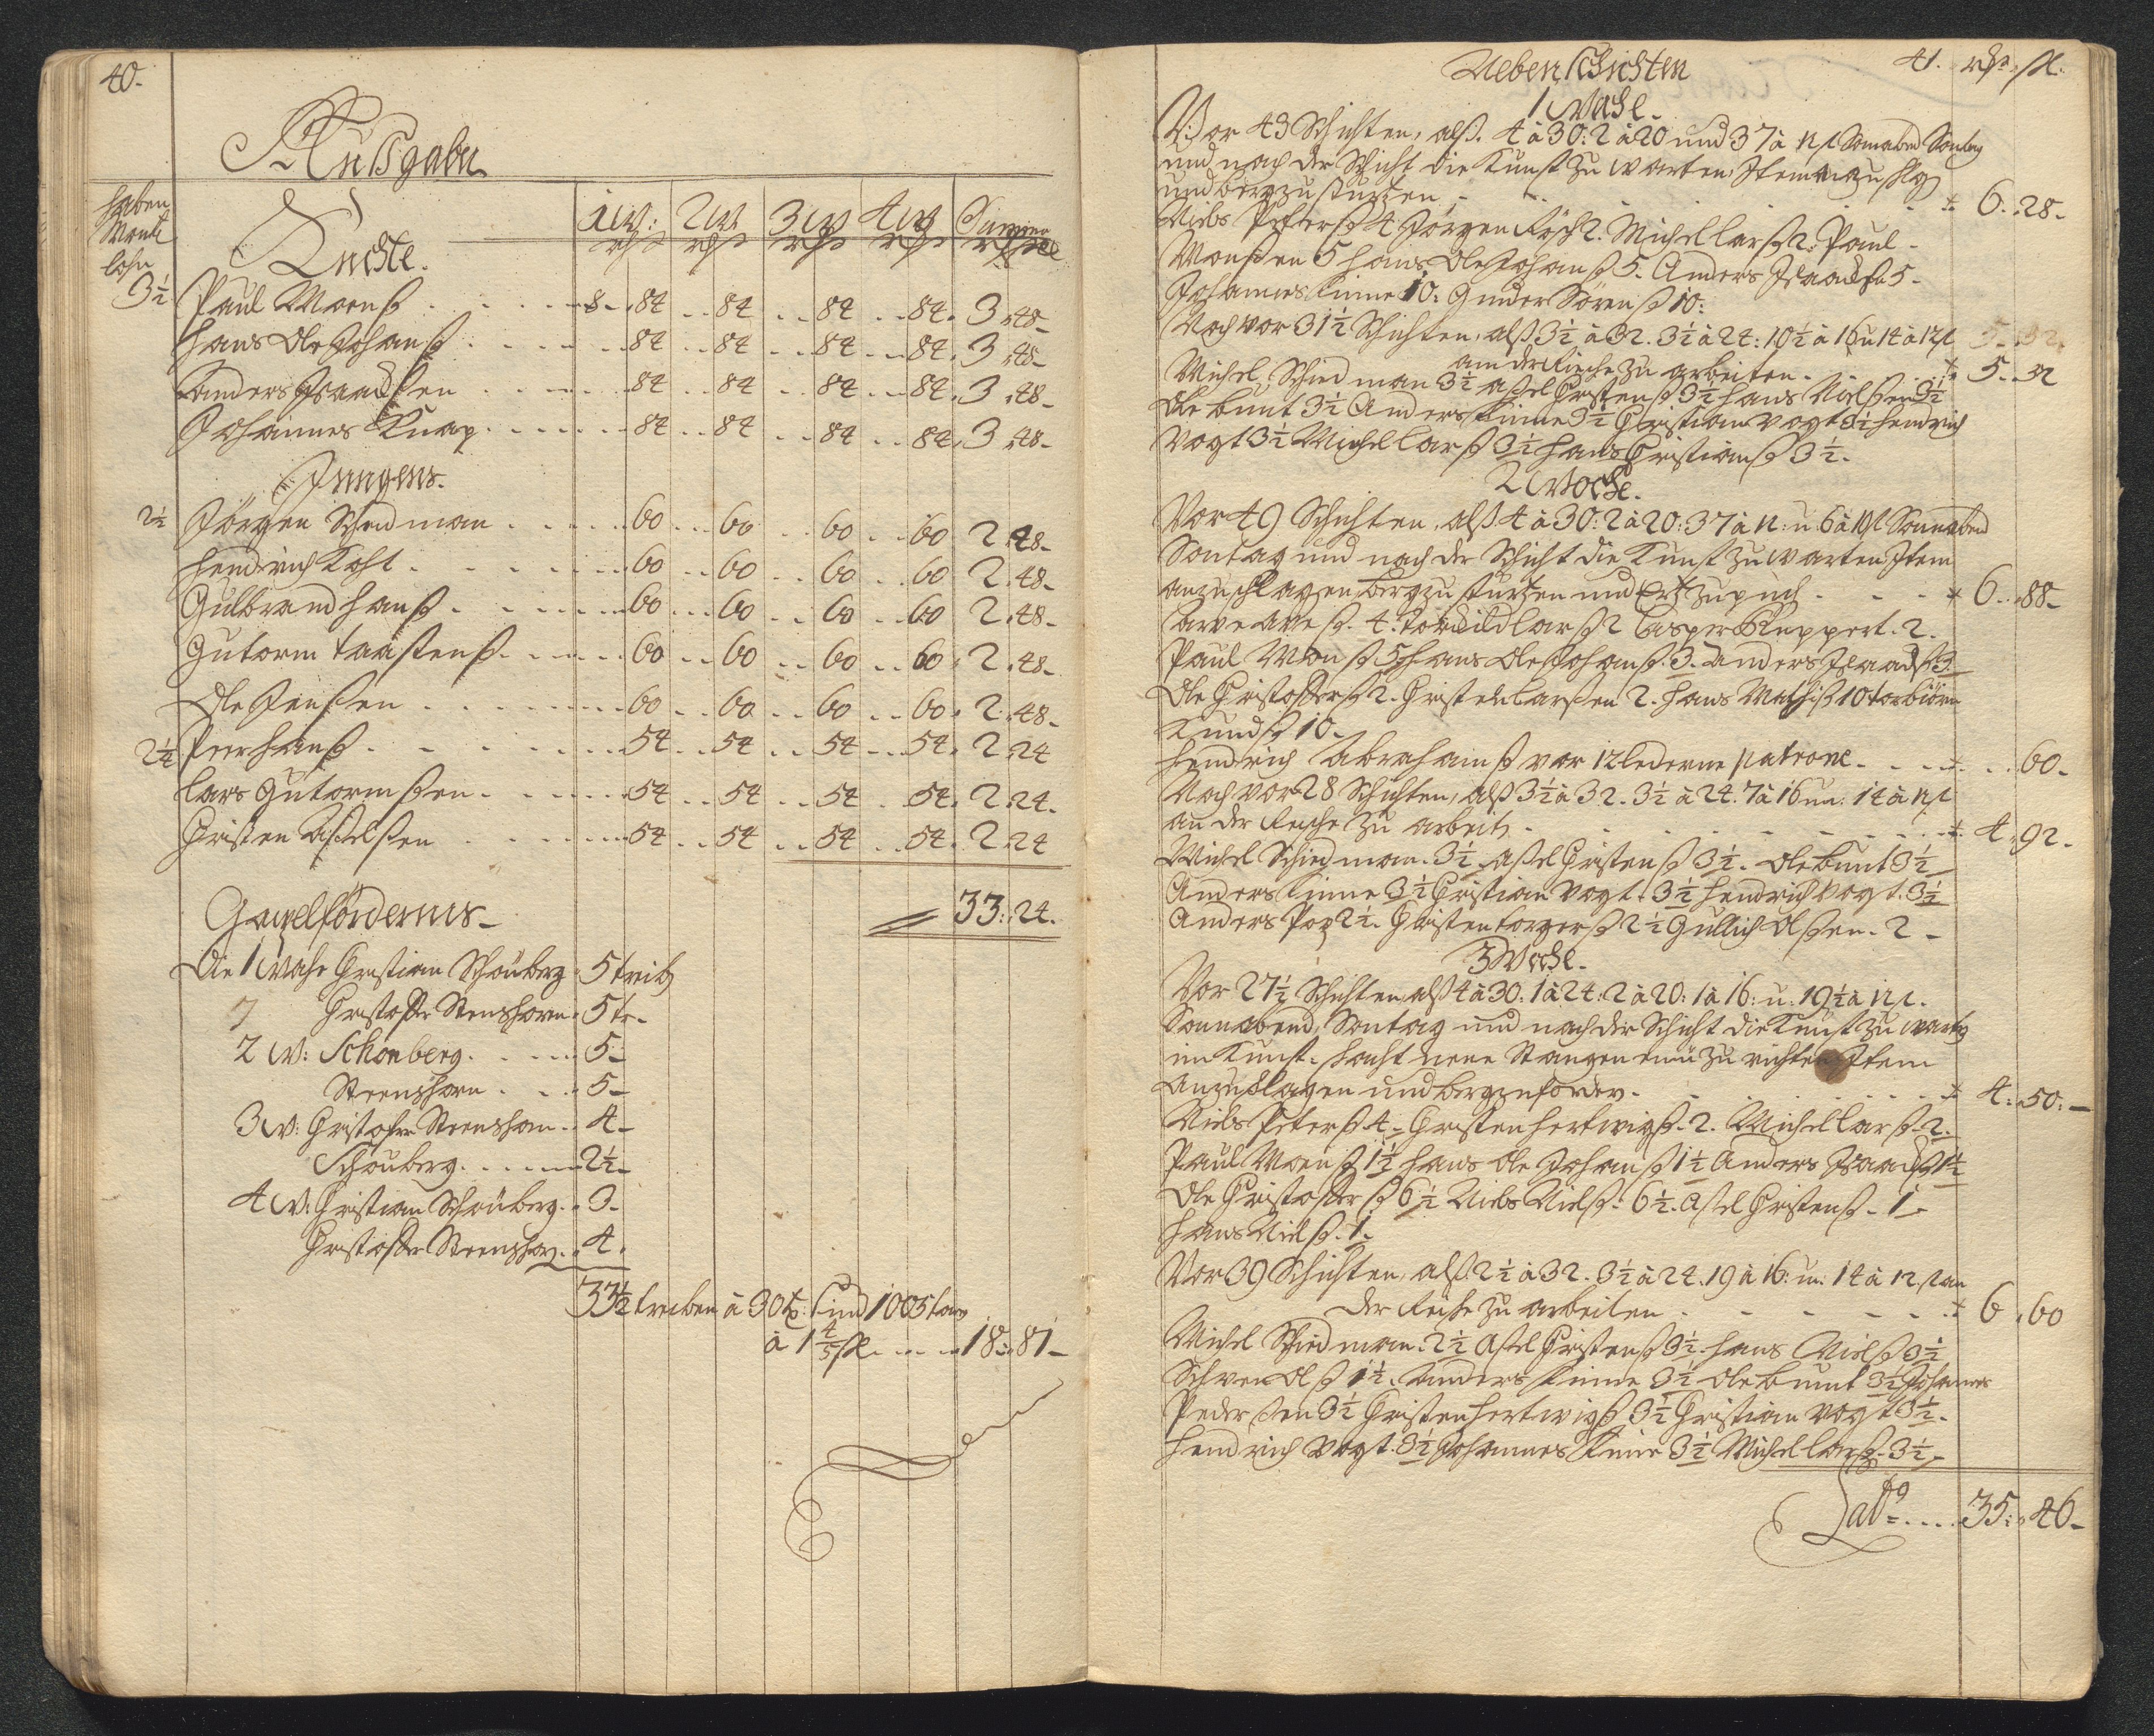 40.
Außgabe
haben
Monats
lohn
Knechte.
1 W: 2 W 3 W 4 W Summa
rthr rthr rthr rthr rthr ßl
3½ Paul Moens - 84 84 84 84 3 48
Hans Ole Johanß 84 84 84 84 3 48
Anders Isaacksen 84 84 84 84 3 48
Johannes Knap 84 84 84 84 3 48
Jungens.
2½ Jörgen Schiedman 60 60 60 60 2 48
Hendrich Kohl 60 60 60 60 2 48
Gulbrand Hanß 60 60 60 60 2 48
Gutorm Taastenß 60 60 60 60 2 48
Ole Jenßen 60 60 60 60 2 48
2¼ Peer Hanß 54 54 54 54 2 24
Lars Gutormßen 54 54 54 54 2 24
Christen Aßelßen 54 54 54 54 2 24
33: 24.
Gapelfördernis
Die 1 Woche Christian Schonberg 5 treib
Christoffer Steenshorn 5 tr
2 W: Schonberg 5
Steenshorn 5
3 W: Christofer Steenshorn 4
Schonberg 2½
4 W: Christian Schonberg 3
Christoffer Steenshorn 4
33½ treiben à 30 t: sind 1005 ton
à 1 4/5 ßl 18: 81
Neben Schichten 41. rthr ßl.
1 Woche
Vor 43 Schichten, alß. 4 à 30: 2 à 20 und 37 à 12 ßl Sonnabend Sontag
und nach der Schicht die Kunst zu warten: Item anzuschlag
und berg zu sturtzen 6. 28.
Niels Peterß 4 Jörgen 2. Michel Larß 2. Paul
Monßen 5 Hans Ole Johanß 5. Anders Isaackß 5
Johannes Kinne 10: Gunder Sörenß 10:
Noch vor 31½ Schichten, alß 3½ à 32. 3½ à 24: 10½ à 16 u 14 à 12 ßl
an der Reiche zu arbeiten 5. 32
Michel Schiedman 3½ Aßel Christenß 3½ Hans Nielßen 3½
Ole Bunt 3½ Anders Kinne 3½ Christian Vogt 3½ Hendrich
Vogt 3½ Michel Larß 3½ Hans Christianß 3½.
2 Woche.
Vor 49 Schichten, alß 4 à 30: 2 à 20: 37 à 12: u: 6 à 10 ßl Sonnabend
Sontag und nach der Schicht die Kunst zu warten Item
anzuschlagen berg zu sturtzen und Ertz zu puch 6. 88
4. Larß 2 Casper Ruppert. 2.
Paul Monß 5 Hans Ole Johanß. 3. Anders Isaackß. 3
Ole Christofferß 2. Christen Larßen 2. Hans Mathiß 10 Torbiörn
Kundß 10.
Hendrich Abrahamß vor 12 lederne patrone 60
Noch vor 28 Schichten, alß 3½ à 32. 3½ à 24. 7 à 16 un: 14 à 12 ßl
an der Reiche zu arbeit 4. 92.
Michel Schiedman. 3½ Aßel Christenß 3½. Ole Bunt 3½
Anders Kinne 3½ Christian Vogt. 3½ Hendrich Vogt. 3½
Anders 2½. Christen Torgerß 2½ Gullich Olßen. 2
3 Woche.
Vor 27½ Schichten alß 4 à 30. 1 à 24: 2 à 20: 1 à 16: u: 19½ à 12 ßl.
Sonnabend, Sontag und nach der Schicht die Kunst zu wart
im Kunst schacht neue Stangen zu richten Item
anzuschlagen und berg zu förder 4. 50.
Niels Peterß 4. Christen Hertwigß. 2. Michel Larß. 2.
Paul Moenß 1½ Hans Ole Johanß 1½ Anders Isaackß 1½
Ole Christofferß 6½ Niels Nielß. 6½. Aßel Christenß. 1.
Hans Nielß. 1.
Vor 39 Schichten, alß 2½ à 32. 3½ à 24. 19 à 16: un: 14 à 12. ßl an
der Reiche zu arbeiten 6. 60
Michel Schiedman. 2½ Aßel Christenß 3½. Hans Nielß 3½
Schwen Olß 1½. Anders Kinne 3½ Ole Bunt 3½ Johannes
Pederßen 3½ Christen Hertwigß 3½ Christian Vogt 3½.
Hendrich Vogt. 3½ Johannes Kinne 3½ Michel Larß. 3½
Latº 35: 46